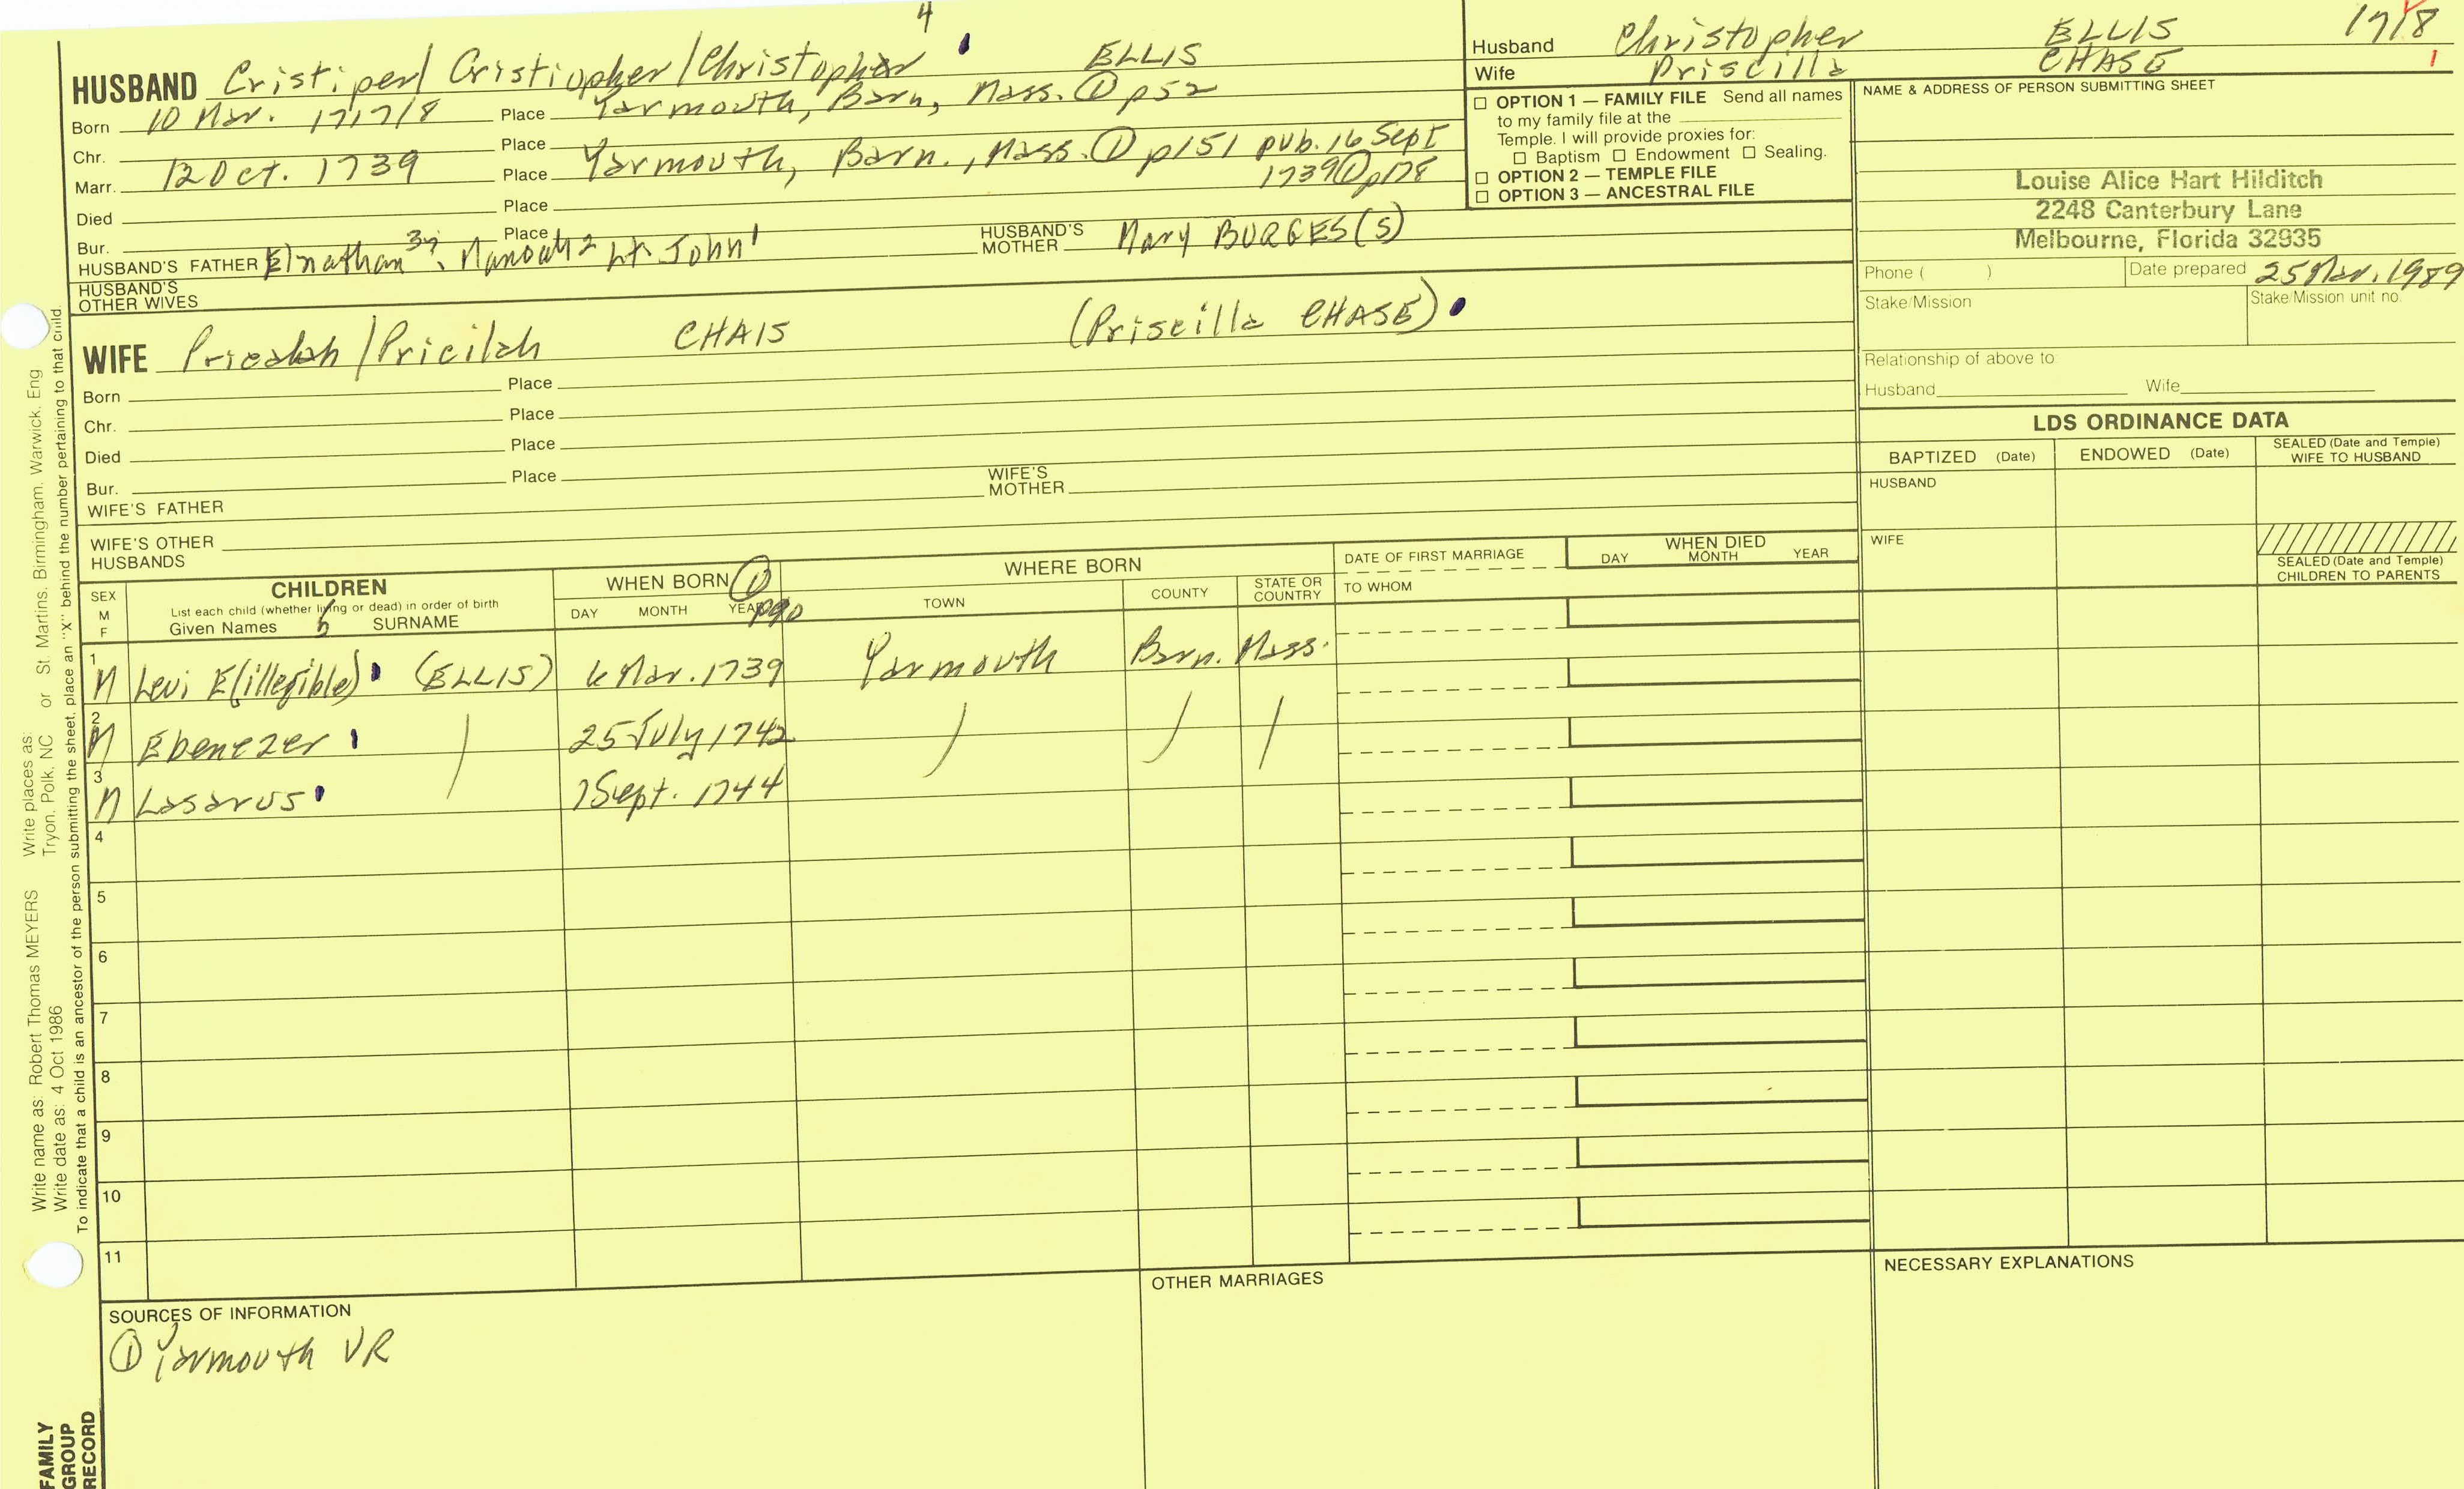 4
HUSBAND Cristiper/ Cristiopher/Christopher ELLIS
Born 10 Mar. 1717/8 Place Yarmouth, Barn, Mass. ① p52
Chr. Place
Marr. 12 Oct. 1739 Place Yarmouth, Barn., Mass. ① p151 pub. 16 Sept
1739 ① p178
Died Place
Bur. Place
HUSBAND'S FATHER Elnathan 3, Manoah 2 Lt. John 1 HUSBAND'S MOTHER Mary BURGES(S)
HUSBAND'S OTHER WIVES
WIFE /Pricilah CHAIS (Priscilla CHASE)
Born Place
Chr. Place
Died Place
Bur. Place
WIFE'S FATHER WIFE'S MOTHER
WIFE'S OTHER HUSBANDS
Husband Christopher ELLIS 1718
Wife Priscilla CHASE 1
☐ OPTION 1 — FAMILY FILE Send all names
to my family file at the
Temple. I will provide proxies for:
☐ Baptism ☐ Endowment ☐ Sealing.
☐ OPTION 2 — TEMPLE FILE
☐ OPTION 3 — ANCESTRAL FILE
NAME & ADDRESS OF PERSON SUBMITTING SHEET
Louise Alice Hart Hilditch
2248 Canterbury Lane
Melbourne, Florida 32935
Phone ( ) Date prepared 25 Mar. 1989
Stake/Mission Stake/Mission unit no.
Relationship of above to
Husband Wife
LDS ORDINANCE DATA
BAPTIZED (Date) ENDOWED (Date) SEALED (Date and Temple)
WIFE TO HUSBAND
HUSBAND
WIFE
SEALED (Date and Temple)
CHILDREN TO PARENTS
SEX
M
F
CHILDREN
List each child (whether living or dead) in order of birth
Given Names 5 SURNAME
WHEN BORN ①
DAY MONTH YEAR p90
WHERE BORN
TOWN COUNTY STATE OR COUNTRY
DATE OF FIRST MARRIAGE
TO WHOM
WHEN DIED
DAY MONTH YEAR
1 M Levi E(illegible) (ELLIS) 6 Mar. 1739 Yarmouth Barn. Mass.
2 M Ebenezer 25 July 1742
3 M Lasarus 7 Sept. 1744
4
5
6
7
8
9
10
11
SOURCES OF INFORMATION
① Yarmouth VR
OTHER MARRIAGES
NECESSARY EXPLANATIONS
Write places as: Tryon, Polk, NC or St. Martins, Birmingham, Warwick, Eng
Write name as: Robert Thomas MEYERS
Write date as: 4 Oct 1986
To indicate that a child is an ancestor of the person submitting the sheet, place an "X" behind the number pertaining to that child.
FAMILY
GROUP
RECORD